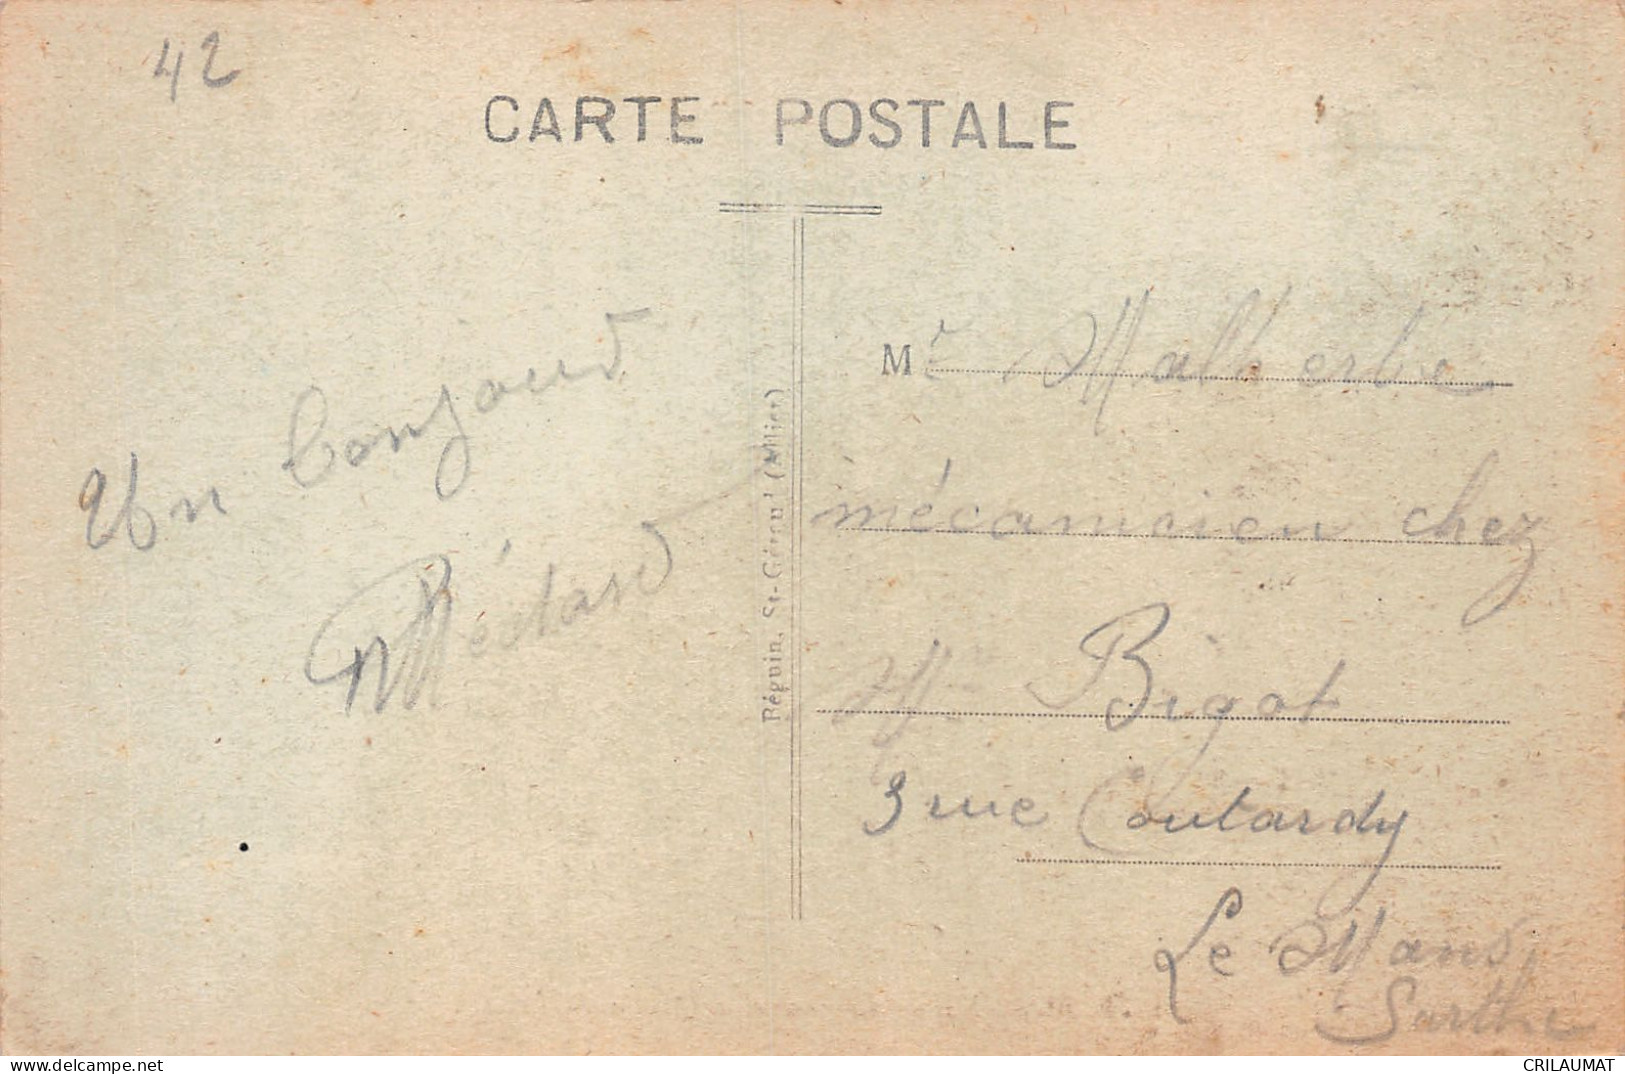 42
CARTE POSTALE
Un bonjour
Médard
Réguin, St-Géran' (Allier)
Mr Malherbe
mécanicien chez
Mr Bigot
3 rue Coutardy
Le Mans
Sarthe
CRILAUMAT